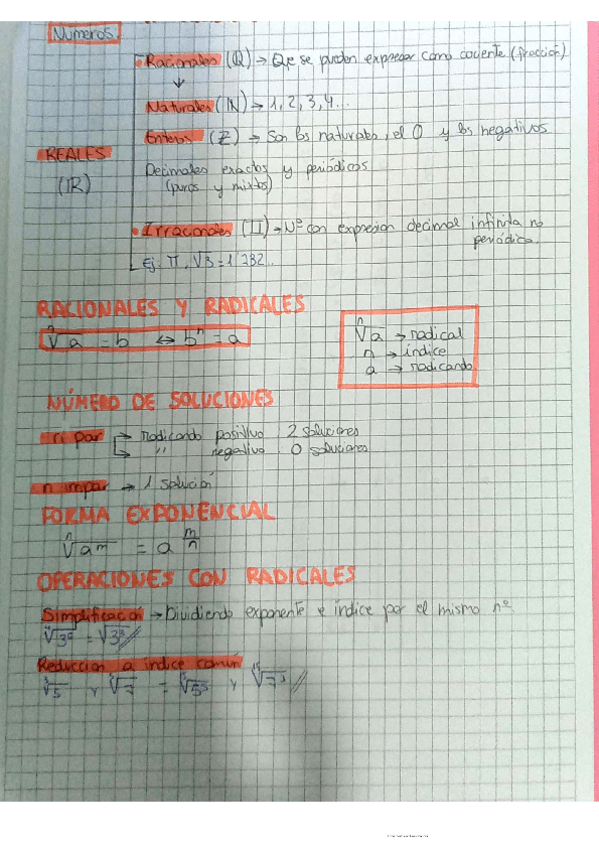 Números:
• Racionales (Q) → Que se pueden expresar como cociente (fracción)
↓
Naturales (N) → 1, 2, 3, 4...
Enteros (Z) → Son los naturales, el 0 y los negativos
REALES
(IR)
Decimales exactos y periódicos
(puros y mixtos)
• Irracionales (II) → Nº con expresion decimal infinita no
periódica.
Ej: π, √3 = 1'732...
RACIONALES Y RADICALES
ⁿ√a = b ↔ bⁿ = a
ⁿ√a → radical
n → índice
a → radicando
NÚMERO DE SOLUCIONES
n par → Radicando positivo : 2 soluciones
→ " negativo : 0 soluciones
n impar → 1 solución
FORMA EXPONENCIAL
ⁿ√aᵐ = a^(m/n)
OPERACIONES CON RADICALES
→ Dividiendo exponente e índice por el mismo nº
Reducción a índice común